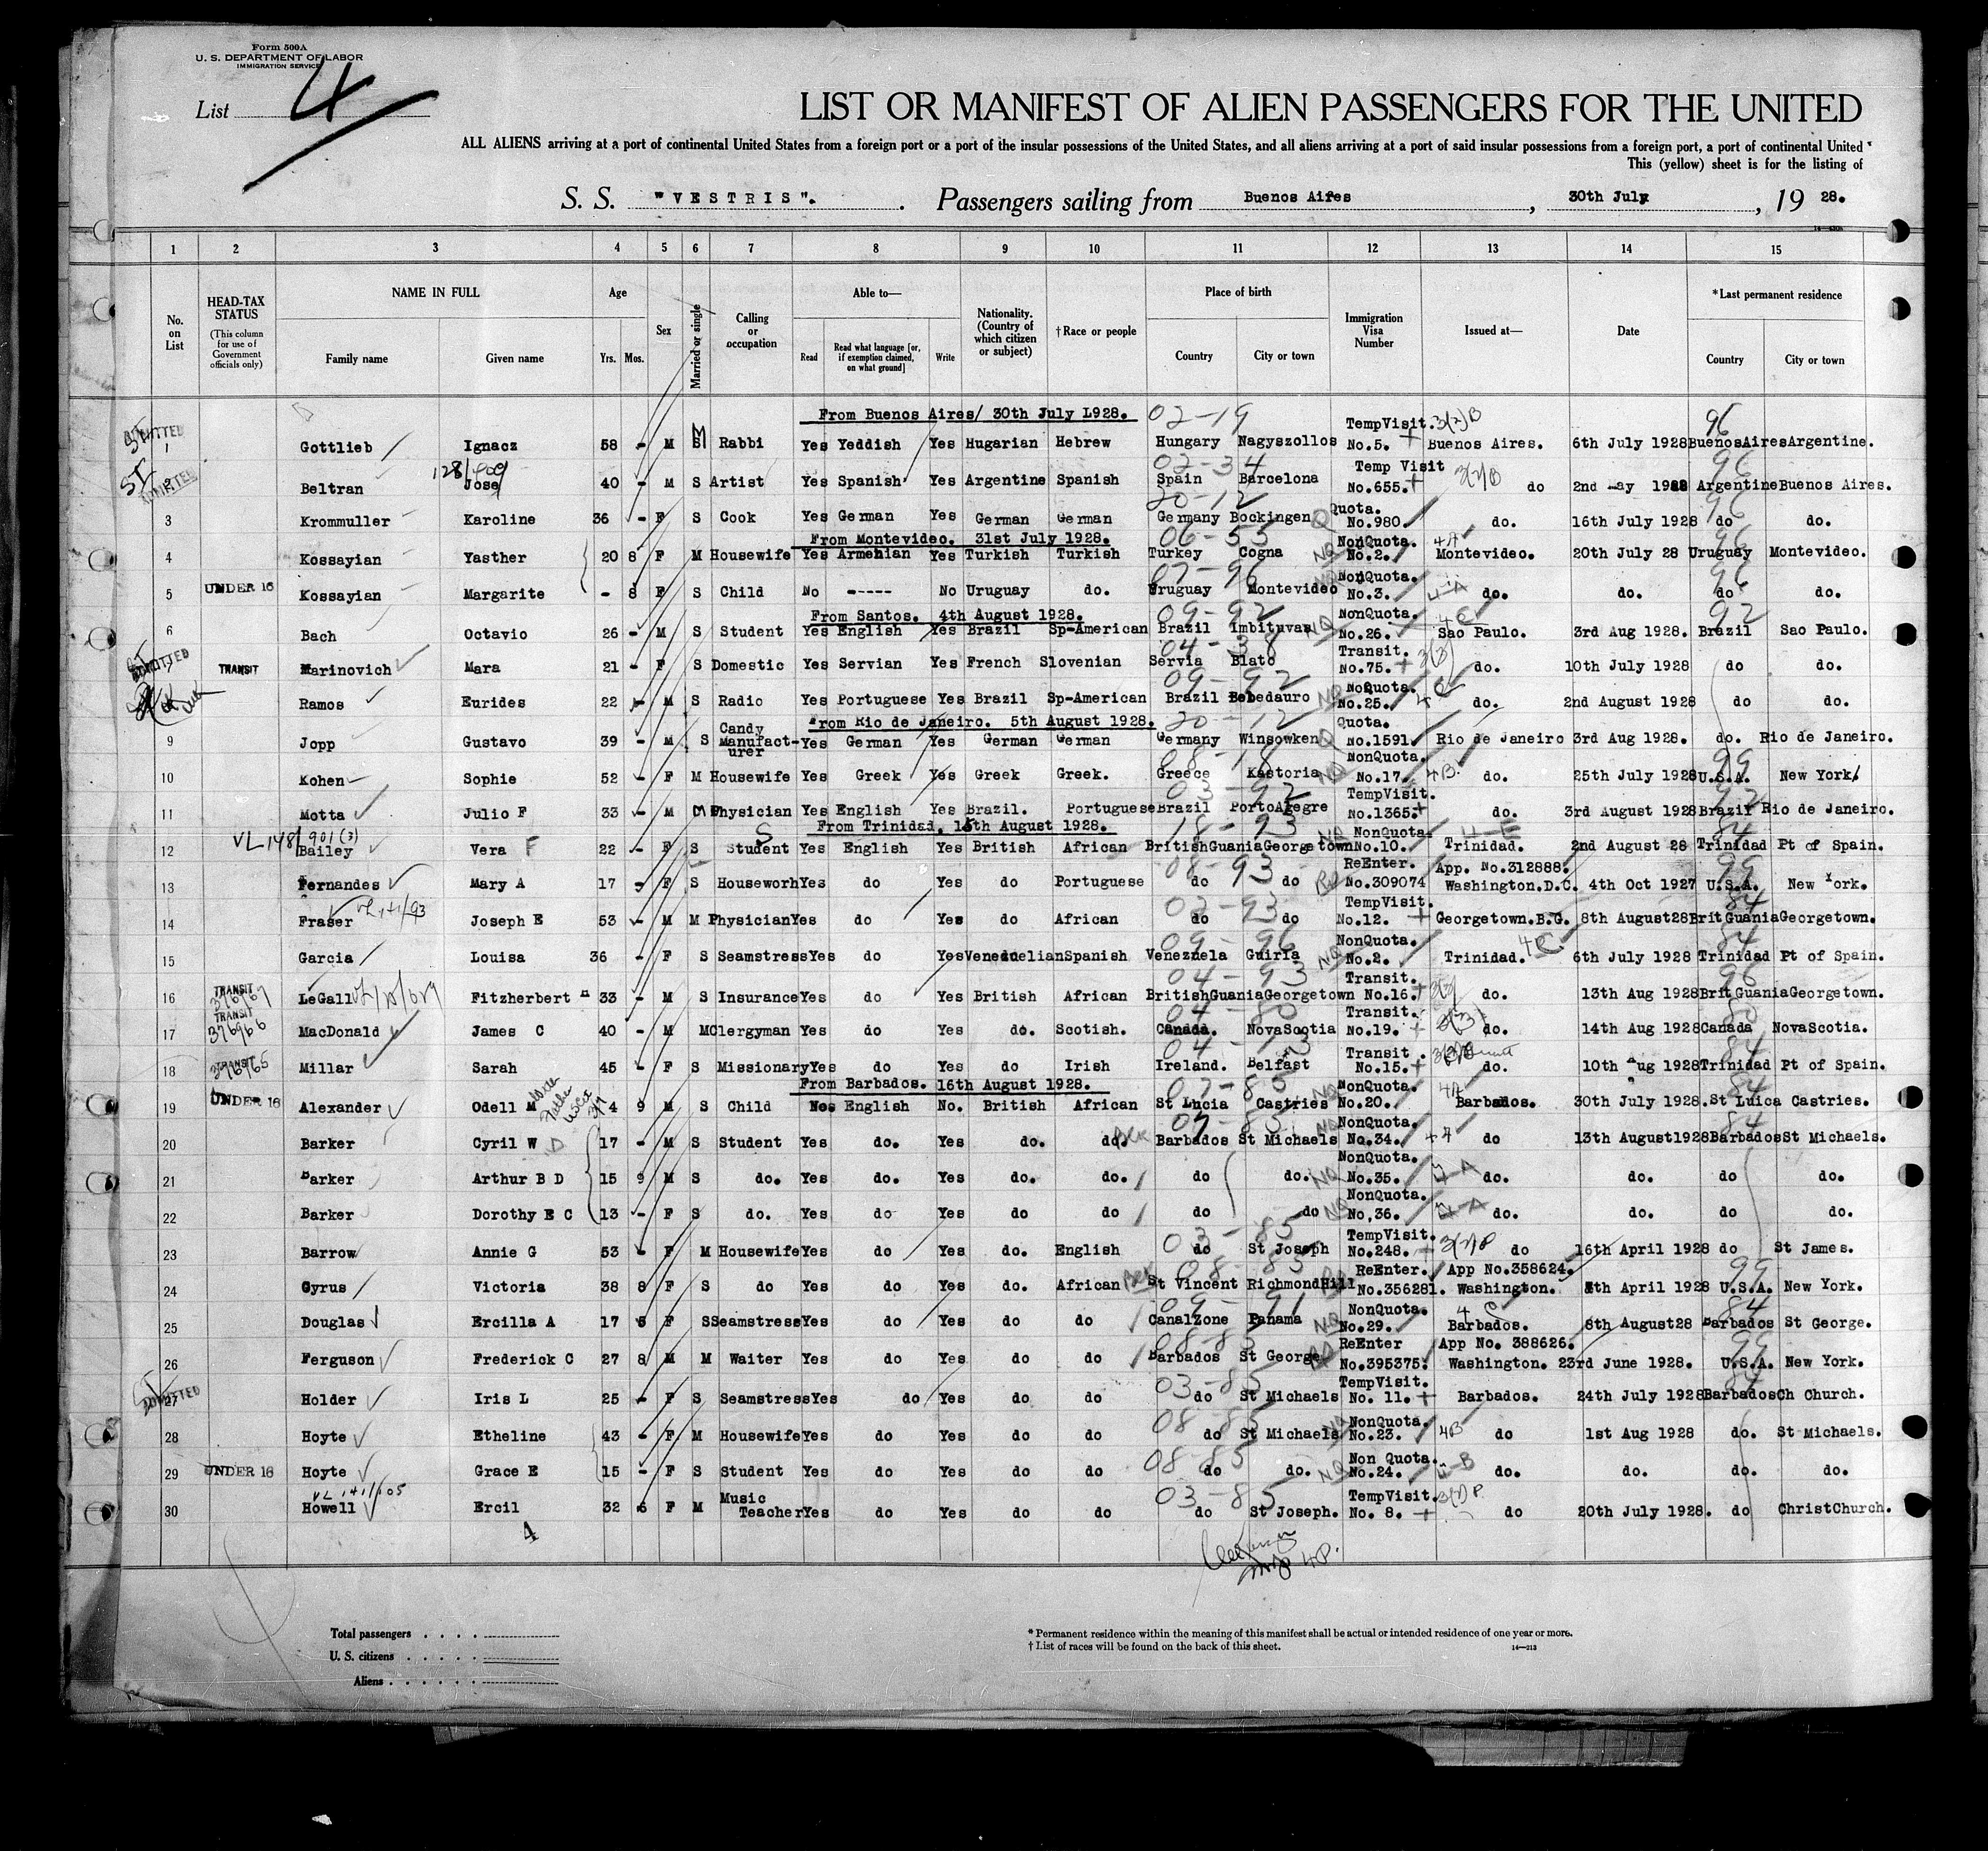 Form 500A
U. S. DEPARTMENT OF LABOR
IMMIGRATION SERVICE
List 4
LIST OR MANIFEST OF ALIEN PASSENGERS FOR THE UNITED
ALL ALIENS arriving at a port of continental United States from a foreign port or a port of the insular possessions of the United States, and all aliens arriving at a port of said insular possessions from a foreign port, a port of continental United
This (yellow) sheet is for the listing of
S. S. "VESTRIS". Passengers sailing from Buenos Aires, 30th July, 19 28.
1 2 3 4 5 6 7 8 9 10 11 12 13 14 15
No. on List
HEAD-TAX STATUS
(This column for use of Government officials only)
NAME IN FULL
Family name Given name
Age
Yrs. Mos.
Sex
Married or single
Calling or occupation
Able to—
Read Read what language [or, if exemption claimed, on what ground] Write
Nationality. (Country of which citizen or subject)
†Race or people
Place of birth
Country City or town
Immigration Visa Number
Issued at—
Date
*Last permanent residence
Country City or town
From Buenos Aires/ 30th July L928. 02-19
ADMITTED 1 Gottlieb Ignacz 58 - M M Rabbi Yes Yeddish Yes Hugarian Hebrew Hungary Nagyszollos TempVisit. No.5. Buenos Aires. 6th July 1928 BuenosAires Argentine.
ADMITTED 2 Beltran Jose 40 - M S Artist Yes Spanish Yes Argentine Spanish Spain Barcelona Temp Visit No.655. do 2nd May 1928 Argentine Buenos Aires.
3 Krommuller Karoline 36 - F S Cook Yes German Yes German German Germany Bockingen Quota. No.980. do. 16th July 1928 do do.
From Montevideo. 31st July 1928.
4 Kossayian Yasther 20 8 F M Housewife Yes Armenian Yes Turkish Turkish Turkey Cogna NonQuota. No.2. Montevideo. 20th July 28 Uruguay Montevideo.
UNDER 16 5 Kossayian Margarite - 8 F S Child No ----- No Uruguay do. Uruguay Montevideo NonQuota. No.3. do. do. do do.
From Santos. 4th August 1928.
6 Bach Octavio 26 - M S Student Yes English Yes Brazil Sp-American Brazil Imbituvar NonQuota. No.26. Sao Paulo. 3rd Aug 1928. Brazil Sao Paulo.
ADMITTED 7 TRANSIT Marinovich Mara 21 - F S Domestic Yes Servian Yes French Slovenian Servia Blato Transit. No.75. do. 10th July 1928 do do.
Ramos Eurides 22 - M S Radio Yes Portuguese Yes Brazil Sp-American Brazil Bebedauro NoQuota. No.25. do. 2nd August 1928 do do.
From Rio de Janeiro. 5th August 1928.
9 Jopp Gustavo 39 - M S Candy Manufact-urer Yes German Yes German German Germany Winsowken Quota. No.1591. Rio de Janeiro 3rd Aug 1928. do. Rio de Janeiro.
10 Kohen Sophie 52 - F M Housewife Yes Greek Yes Greek Greek. Greece Kastoria NonQuota. No.17. do. 25th July 1928 U.S.A. New York.
11 Motta Julio F 33 - M M Physician Yes English Yes Brazil. Portuguese Brazil PortoAgegre TempVisit. No.1365. do. 3rd August 1928 Brazil Rio de Janeiro.
From Trinidad, 15th August 1928.
12 Bailey Vera F 22 - F S Student Yes English Yes British African BritishGuania Georgetown NonQuota. No.10. Trinidad. 2nd August 28 Trinidad Pt of Spain.
13 Fernandes Mary A 17 - F S Houseworh Yes do Yes do Portuguese do do ReEnter. No.309074 App. No.312888. Washington.D.C. 4th Oct 1927 U.S.A. New York.
14 Fraser Joseph E 53 - M M Physician Yes do Yes do African do do TempVisit. No.12. Georgetown.B.G. 8th August28 BritGuania Georgetown.
15 Garcia Louisa 36 - F S Seamstress Yes do Yes Venezuelian Spanish Venezuela Guiria NonQuota. No.2. Trinidad. 6th July 1928 Trinidad Pt of Spain.
16 TRANSIT 376967 LeGall Fitzherbert 33 - M S Insurance Yes do Yes British African BritishGuania Georgetown Transit. No.16. do. 13th Aug 1928 BritGuania Georgetown.
17 TRANSIT 376966 MacDonald James C 40 - M M Clergyman Yes do Yes do. Scotish. Canada. NovaScotia Transit. No.19. do. 14th Aug 1928 Canada NovaScotia.
18 TRANSIT Millar Sarah 45 - F S Missionary Yes do Yes do Irish Ireland. Belfast Transit. No.15. do. 10th Aug 1928 Trinidad Pt of Spain.
From Barbados. 16th August 1928.
19 UNDER 16 Alexander Odell M 4 9 M S Child No English No. British African St Lucia Castries NonQuota. No.20. Barbados. 30th July 1928. St Luica Castries.
20 Barker Cyril W 17 - M S Student Yes do. Yes do. do. Barbados St Michaels NonQuota. No.34. do 13th August1928 Barbados St Michaels.
21 Barker Arthur B D 15 9 M S do. Yes do. Yes do. do. do do. NonQuota. No.35. do. do. do do.
22 Barker Dorothy E C 13 - F S do. Yes do Yes do do do do NonQuota. No,36. do. do. do do.
23 Barrow Annie G 53 - F M Housewife Yes do Yes do. English do St Joseph TempVisit. No.248. do 16th April 1928 do St James.
24 Cyrus Victoria 38 8 F S do Yes do Yes do. African St Vincent RichmondHill ReEnter. No.356281. App No.358624. Washington. 4th April 1928 U.S.A. New York.
25 Douglas Ercilla A 17 5 F S Seamstress Yes do Yes do do CanalZone Panama NonQuota. No.29. Barbados. 8th August28 Barbados St George.
26 Ferguson Frederick C 27 8 M M Waiter Yes do Yes do do Barbados St George ReEnter No.395375. App No. 388626. Washington. 23rd June 1928. U.S.A. New York.
ADMITTED 27 Holder Iris L 25 - F S Seamstress Yes do Yes do do do St Michaels TempVisit. No. 11. Barbados. 24th July 1928 Barbados Ch Church.
28 Hoyte Etheline 43 - F M Housewife Yes do Yes do do do St Michaels NonQuota. No.23. do 1st Aug 1928 do. St Michaels.
29 UNDER 16 Hoyte Grace E 15 - F S Student Yes do Yes do do do do. Non Quota. No.24. do. do. do. do.
30 Howell Ercil 32 6 F M Music Teacher Yes do Yes do do do St Joseph. TempVisit. No. 8. do 20th July 1928. do ChristChurch.
4
Total passengers . . . .
U. S. citizens . . . . .
Aliens . . . . . .
* Permanent residence within the meaning of this manifest shall be actual or intended residence of one year or more.
† List of races will be found on the back of this sheet. 14—213